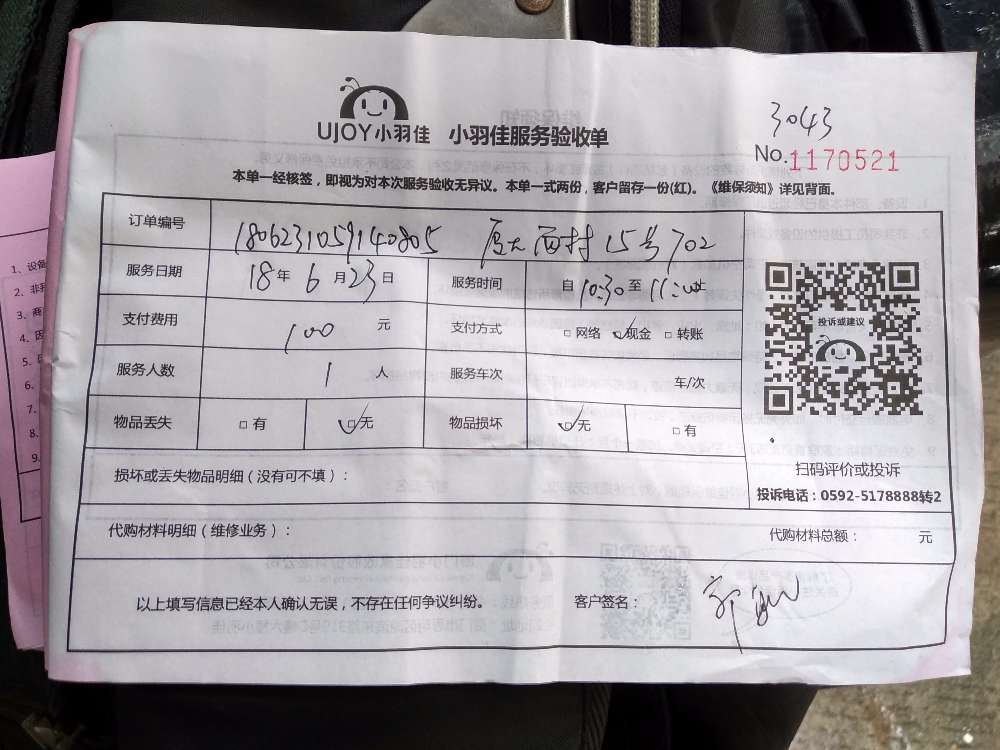 3043
UJOY小羽佳 小羽佳服务验收单
No.1170521
本单一经核签，即视为对本次服务验收无异议。本单一式两份，客户留存一份(红)。《维保须知》详见背面。
订单编号 1806231059140805 厦大西村15号702
服务日期 18年6月23日 服务时间 自10:30至11:00止
支付费用 100元 支付方式 □网络 ☑现金 □转账
服务人数 1人 服务车次 车/次
物品丢失 □有 ☑无 物品损坏 ☑无 □有
投诉或建议
扫码评价或投诉
投诉电话：0592-5178888转2
损坏或丢失物品明细（没有可不填）：
代购材料明细（维修业务）： 代购材料总额： 元
以上填写信息已经本人确认无误，不存在任何争议纠纷。 客户签名：